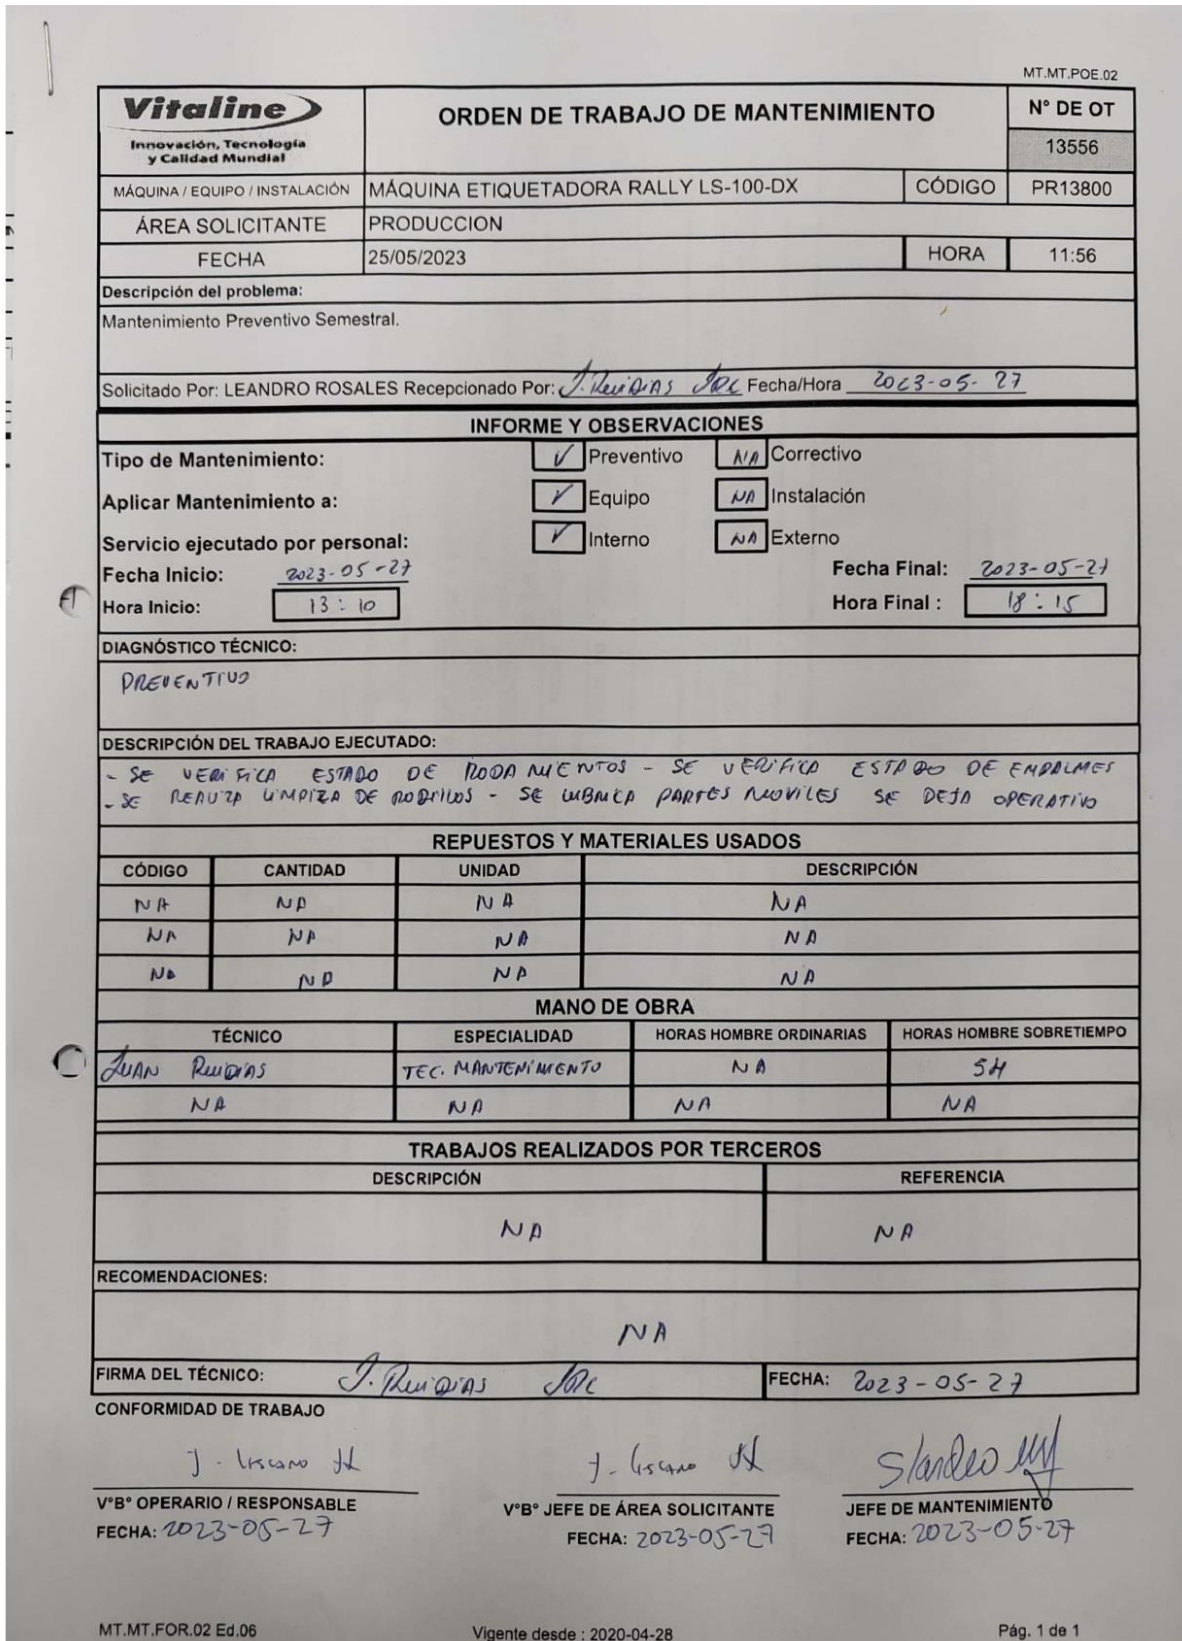 MT.MT.POE.02
Vitaline
Innovación, Tecnología
y Calidad Mundial
ORDEN DE TRABAJO DE MANTENIMIENTO
N° DE OT
13556
MÁQUINA / EQUIPO / INSTALACIÓN MÁQUINA ETIQUETADORA RALLY LS-100-DX CÓDIGO PR13800
ÁREA SOLICITANTE PRODUCCION
FECHA 25/05/2023 HORA 11:56
Descripción del problema:
Mantenimiento Preventivo Semestral.
Solicitado Por: LEANDRO ROSALES Recepcionado Por: J. Ruidias Fecha/Hora 2023-05-27
INFORME Y OBSERVACIONES
Tipo de Mantenimiento: ✓ Preventivo N/A Correctivo
Aplicar Mantenimiento a: ✓ Equipo NA Instalación
Servicio ejecutado por personal: ✓ Interno NA Externo
Fecha Inicio: 2023-05-27 Fecha Final: 2023-05-27
Hora Inicio: 13:10 Hora Final : 18:15
DIAGNÓSTICO TÉCNICO:
PREVENTIVO
DESCRIPCIÓN DEL TRABAJO EJECUTADO:
- SE VERIFICA ESTADO DE RODAMIENTOS - SE VERIFICA ESTADO DE EMPALMES
- SE REALIZA LIMPIZA DE RODILLOS - SE LUBRICA PARTES MOVILES SE DEJA OPERATIVO
REPUESTOS Y MATERIALES USADOS
CÓDIGO CANTIDAD UNIDAD DESCRIPCIÓN
NA NA NA NA
NA NA NA NA
NA NA NA NA
MANO DE OBRA
TÉCNICO ESPECIALIDAD HORAS HOMBRE ORDINARIAS HORAS HOMBRE SOBRETIEMPO
JUAN Ruidias TEC. MANTENIMIENTO NA 5H
NA NA NA NA
TRABAJOS REALIZADOS POR TERCEROS
DESCRIPCIÓN REFERENCIA
NA NA
RECOMENDACIONES:
NA
FIRMA DEL TÉCNICO: J. Ruidias FECHA: 2023-05-27
CONFORMIDAD DE TRABAJO
J. Liscano J. Liscano
V°B° OPERARIO / RESPONSABLE V°B° JEFE DE ÁREA SOLICITANTE JEFE DE MANTENIMIENTO
FECHA: 2023-05-27 FECHA: 2023-05-27 FECHA: 2023-05-27
MT.MT.FOR.02 Ed.06 Vigente desde : 2020-04-28 Pág. 1 de 1